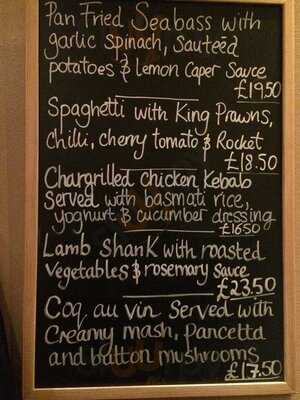 Pan Fried Seabass with
garlic spinach, Sauteēd
potatoes & lemon Caper Sauce
£19.50
Spaghetti with King Prawns,
chilli, cherry tomato & Rocket
£18.50
Chargrilled chicken Kebab
Served with basmati rice,
yoghurt & cucumber dressing
£16.50
Lamb Shank with roasted
vegetables & rosemary sauce
£23.50
Coq au vin Served with
Creamy mash, pancetta
and button mushrooms
£17.50